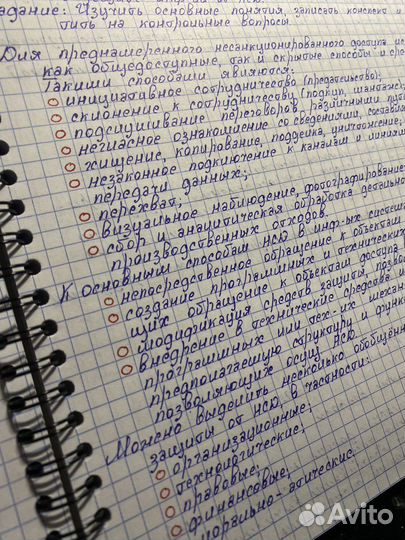 Задание: Изучить основные понятия, записать конспект и
тить на контрольные вопросы.
Для преднамеренного несанкционированного доступа ис
как общедоступные, так и скрытые способы и сре
Такими способами являются:
инициативное сотрудничество (предательство);
склонение к сотрудничеству (подкуп, шантаж
подслушивание переговоров различными пут
негласное ознакомление со сведениями, составл
хищение, копирование, подделка, уничтожение;
незаконное подключение к каналам и линиям
передачи данных;
перехват;
визуальное наблюдение, фотографирование
сбор и аналитическая обработка детально
производственных отходов.
К основным способам НСД в инф-ых система
непосредственное обращение к объектам
создание программных и технических
щих обращение к объектам доступа
модификация средств защиты, позво
внедрение в технические средства и
программных или тех-их механ
предполагаемую структуру и функ
позволяющих осущ НСД.
Можно выделить несколько обобщённ
защиты от НСД, в частности:
организационные;
технологические;
правовые;
финансовые;
морально-этические.
Avito